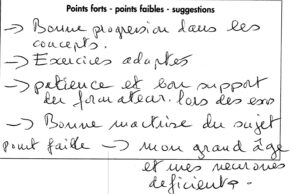 Points forts - points faibles - suggestions
-> Bonne progression dans les
concepts.
-> Exercices adaptés
-> patience et bon support
du formateur lors des exos
-> Bonne maitrise du sujet
point faible -> mon grand âge
et mes neurones
déficients.